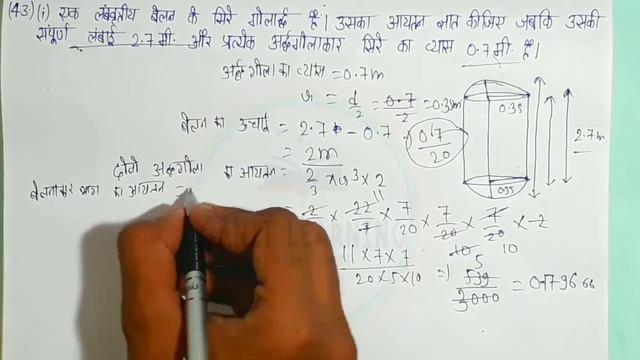 (43:) (i) एक लंबवृत्तीय बेलन के सिरे गोलार्द्ध है। उसका आयतन ज्ञात कीजिए जबकि उसकी
संपूर्ण लंबाई 2.7 मी. और प्रत्येक अर्द्धगोलाकार सिरे का व्यास 0.7 मी. है।
अर्द्धगोला का व्यास = 0.7m
r = d/2 = 0.7/2 = 0.35m
बेलन का ऊंचाई = 2.7 - 0.7
= 2m
0.7/20
0.35
2.7m
0.35
दोनो अर्द्धगोला का आयतन = 2/3 × πr³ × 2
बेलनाकार भाग का आयतन =
= 2/3 × 22/7 × 7/20 × 7/20 × 7/20 × 2
11
10 10
5
11 × 7 × 7 / 20 × 5 × 10 =) 539/3000 = 0.179666